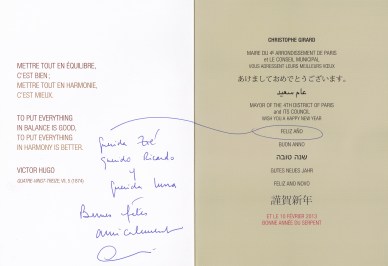 METTRE TOUT EN ÉQUILIBRE,
C'EST BIEN ;
METTRE TOUT EN HARMONIE,
C'EST MIEUX.
TO PUT EVERYTHING
IN BALANCE IS GOOD,
TO PUT EVERYTHING
IN HARMONY IS BETTER.
VICTOR HUGO
QUATRE-VINGT-TREIZE, VII, 5 (1874)
Querida Zoé
querido Ricardo
y
querida Luna
Bonnes fêtes
amicalement
CHRISTOPHE GIRARD
MAIRE DU 4e ARRONDISSEMENT DE PARIS
ET LE CONSEIL MUNICIPAL
VOUS ADRESSENT LEURS MEILLEURS VŒUX
あけましておめでとうございます。
عام سعيد
MAYOR OF THE 4TH DISTRICT OF PARIS
AND ITS COUNCIL
WISH YOU A HAPPY NEW YEAR
FELIZ AÑO
BUON ANNO
שנה טובה
GUTES NEUES JAHR
FELIZ ANO NOVO
謹賀新年
ET LE 10 FÉVRIER 2013
BONNE ANNÉE DU SERPENT